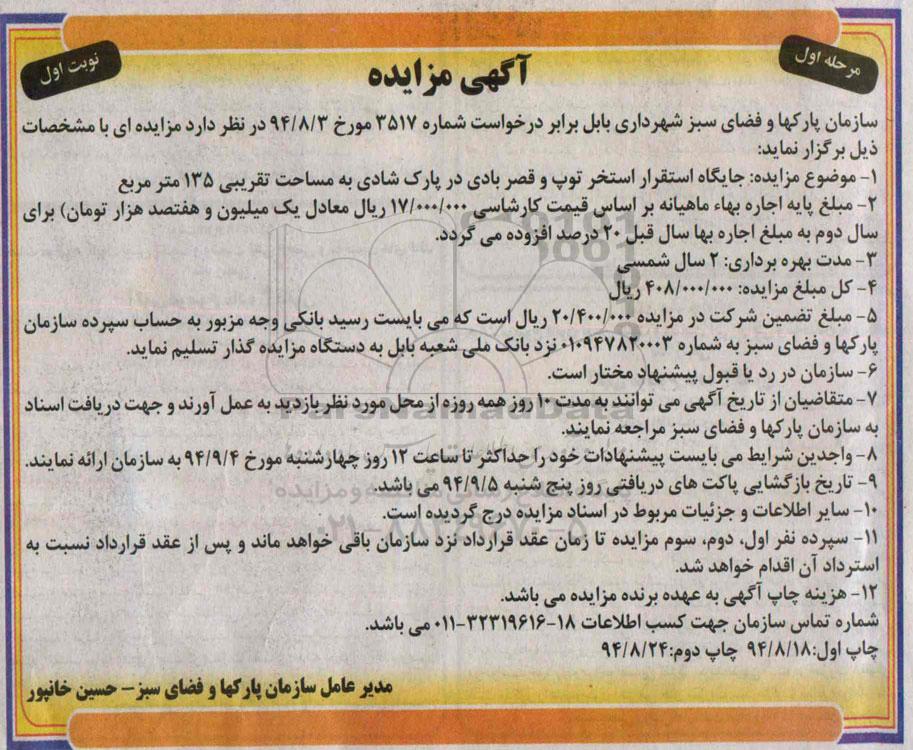 مرحله اول
نوبت اول
آگهی مزایده
سازمان پارکها و فضای سبز شهرداری بابل برابر درخواست شماره ۳۵۱۷ مورخ ۹۴/۸/۳ در نظر دارد مزایده ای با مشخصات
ذیل برگزار نماید:
۱- موضوع مزایده: جایگاه استقرار استخر توپ و قصر بادی در پارک شادی به مساحت تقریبی ۱۳۵ متر مربع
۲- مبلغ پایه اجاره بهاء ماهیانه بر اساس قیمت کارشناسی ۱۷/۰۰۰/۰۰۰ ریال معادل یک میلیون و هفتصد هزار تومان) برای
سال دوم به مبلغ اجاره بها سال قبل ۲۰ درصد افزوده می گردد.
۳- مدت بهره برداری: ۲ سال شمسی
۴- کل مبلغ مزایده: ۴۰۸/۰۰۰/۰۰۰ ریال
۵- مبلغ تضمین شرکت در مزایده ۲۰/۴۰۰/۰۰۰ ریال است که می بایست رسید بانکی وجه مزبور به حساب سپرده سازمان
پارکها و فضای سبز به شماره ۰۱۰۹۴۷۸۲۰۰۰۳ نزد بانک ملی شعبه بابل به دستگاه مزایده گذار تسلیم نماید.
۶- سازمان در رد یا قبول پیشنهاد مختار است.
۷- متقاضیان از تاریخ آگهی می توانند به مدت ۱۰ روز همه روزه از محل مورد نظر بازدید به عمل آورند و جهت دریافت اسناد
به سازمان پارکها و فضای سبز مراجعه نمایند.
۸- واجدین شرایط می بایست پیشنهادات خود را حداکثر تا ساعت ۱۲ روز چهارشنبه مورخ ۹۴/۹/۴ به سازمان ارائه نمایند.
۹- تاریخ بازگشایی پاکت های دریافتی روز پنج شنبه ۹۴/۹/۵ می باشد.
۱۰- سایر اطلاعات و جزئیات مربوط در اسناد مزایده درج گردیده است.
۱۱- سپرده نفر اول، دوم، سوم مزایده تا زمان عقد قرارداد نزد سازمان باقی خواهد ماند و پس از عقد قرارداد نسبت به
استرداد آن اقدام خواهد شد.
۱۲- هزینه چاپ آگهی به عهده برنده مزایده می باشد.
شماره تماس سازمان جهت کسب اطلاعات ۱۸-۳۲۳۱۹۶۱۶-۰۱۱ می باشد.
چاپ اول:۹۴/۸/۱۸ چاپ دوم:۹۴/۸/۲۴
مدیر عامل سازمان پارکها و فضای سبز- حسین خانپور
ParsNamadData